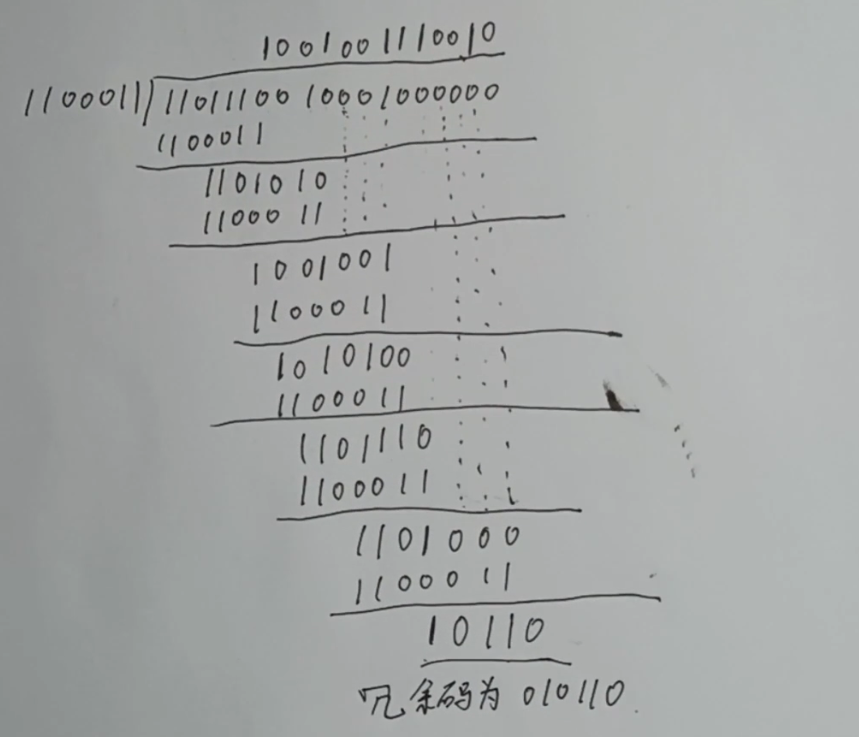 1001001110010
1100011)1101110010001000000
1100011
1101010
1100011
1001001
1100011
1010100
1100011
1101110
1100011
1101000
1100011
10110
冗余码为 010110.